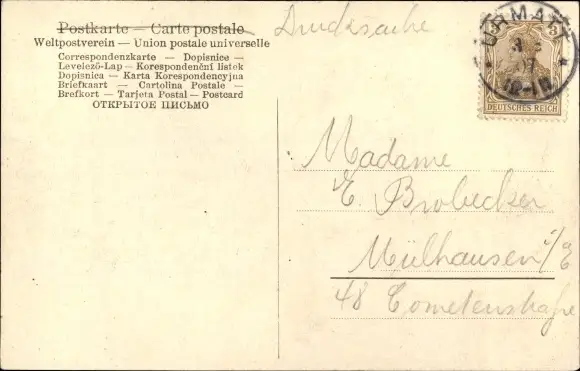 Postkarte — Carte postale
Weltpostverein — Union postale universelle
Correspondenzkarte — Dopisnice —
Levelező-Lap — Korespondenční lístek
Dopisnica — Karta Korespondencyjna
Briefkaart — Cartolina Postale —
Brefkort — Tarjeta Postal — Postcard
ОТКРЫТОЕ ПИСЬМО
Drucksache
URMATT
3 3
DEUTSCHES REICH
Madame
E. Brobecker
Mülhausen i/E
48 Cometenstraße